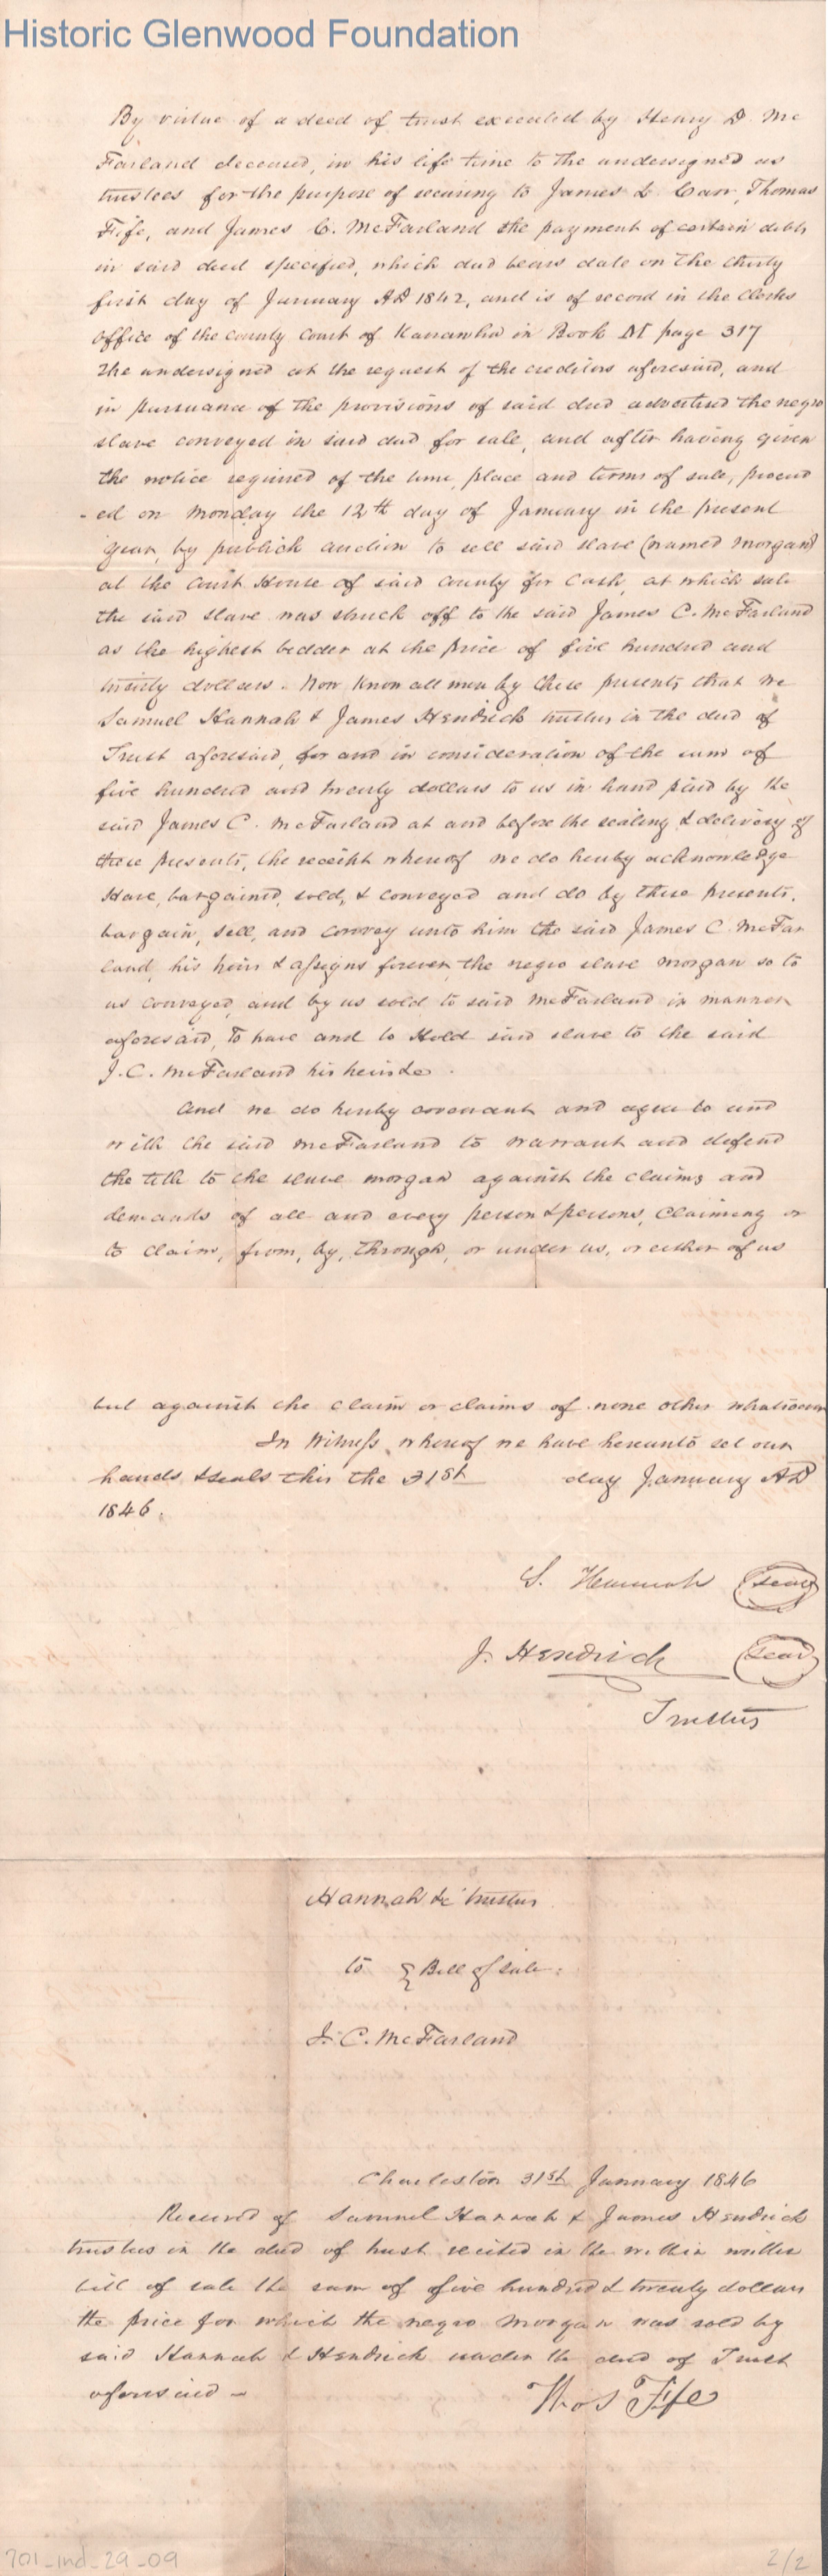 Historic Glenwood Foundation
By virtue of a deed of trust executed by Henry D. Mc
Farland deceased, in his life time to the undersigned as
trustees for the purpose of securing to James L. Carr, Thomas
Fife, and James C. McFarland the payment of certain debts
in said deed specified, which deed bears date on the thirty
first day of January AD 1842, and is of record in the Clerks
office of the county court of Kanawha in Book M page 317
The undersigned at the request of the creditors aforesaid, and
in pursuance of the provisions of said deed advertised the negro
slave conveyed in said deed for sale, and after having given
the notice required of the time, place and terms of sale, proceed
-ed on Monday the 12th day of January in the present
year, by publick auction to sell said slave (named Morgan)
at the Court House of said county for Cash, at which sale
the said slave was struck off to the said James C. McFarland
as the highest bidder at the price of five hundred and
twenty dollars. Now Know all men by these presents that we
Samuel Hannah & James Hendrick trustees in the deed of
Trust aforesaid, for and in consideration of the sum of
five hundred and twenty dollars to us in hand paid by the
said James C. McFarland at and before the sealing & delivery of
these presents, the receipt whereof we do hereby acknowledge
Have, bargained, sold, & conveyed and do by these presents,
bargain, sell, and convey unto him the said James C. McFar
land, his heirs & assigns forever, the negro slave Morgan so to
us conveyed, and by us sold to said McFarland in manner
aforesaid, To have and to Hold said slave to the said
J. C. McFarland his heirs &c.
And we do hereby covenant and agree to and
with the said McFarland to warrant and defend
the title to the slave Morgan against the claims and
demands of all and every person & persons, claiming or
to claim, from, by, through, or under us, or either of us
but against the claim or claims of none other whatsoever
In Witness whereof we have hereunto set our
hands & seals this the 31st day January AD
1846.
S. Hannah Seal
J. Hendrick Seal
Trustees
Hannah &c trustees
to } Bill of sale:
J. C. McFarland
Charleston 31st January 1846
Received of Samuel Hannah & James Hendrick
trustees in the deed of trust recited in the within written
bill of sale the sum of five hundred & twenty dollars
the price for which the negro Morgan was sold by
said Hannah & Hendrick under the deed of Trust
aforesaid —
Thos Fife
701_ind_29_09
2/2